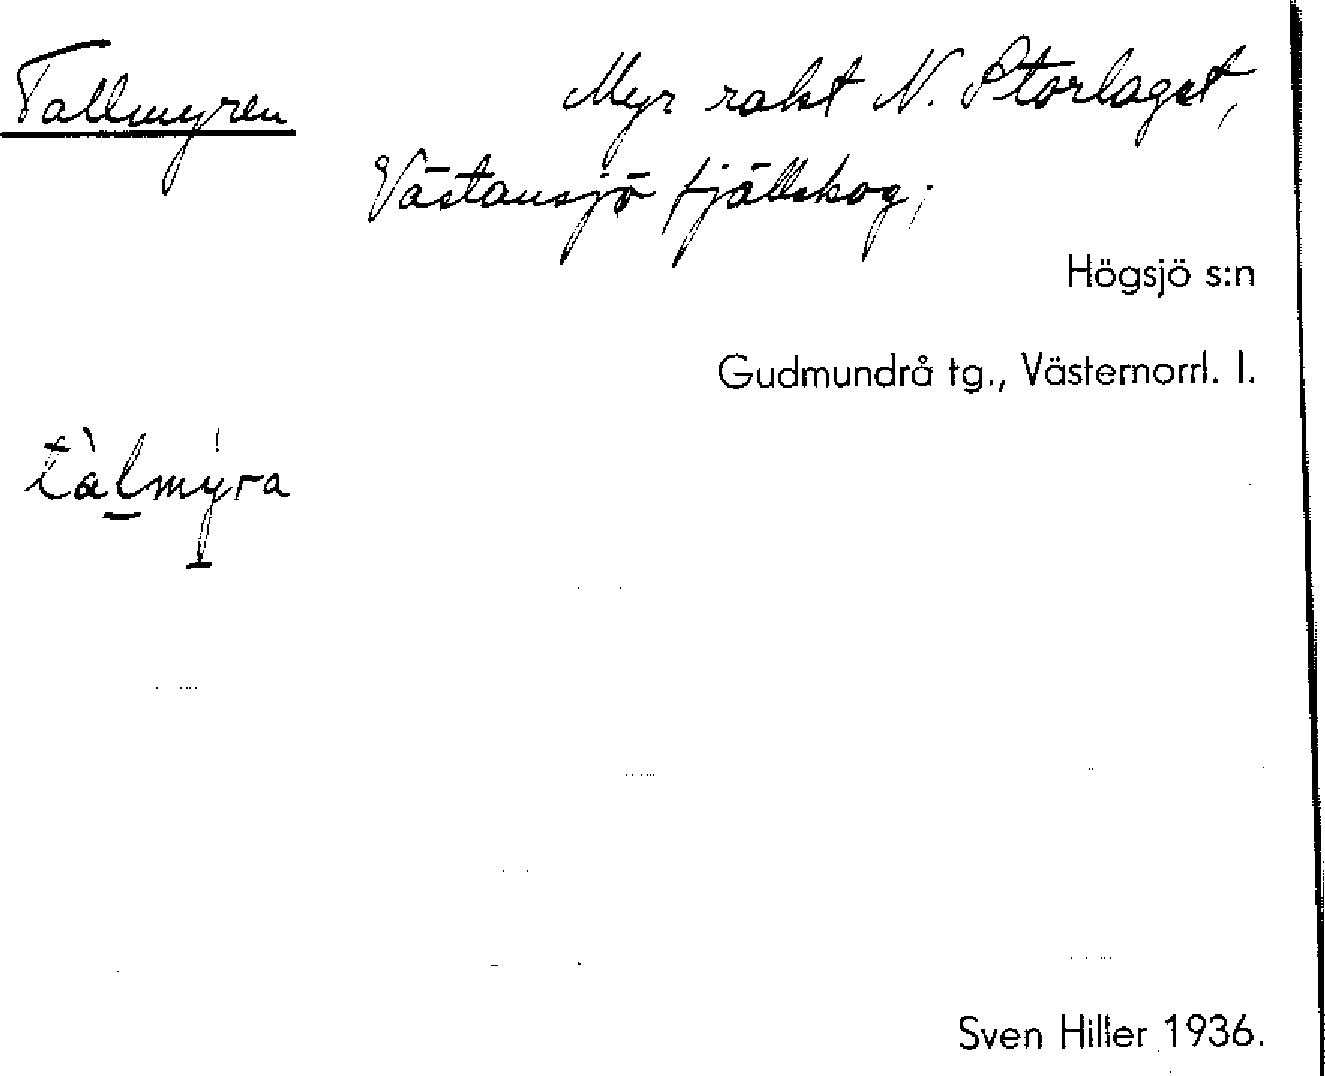 Tallmyren Myr rakt N. Storlaget,
Västansjö fjällskog;
Högsjö s:n
Gudmundrå tg., Västernorrl. l.
tàl̠mýra
Sven Hiller 1936.